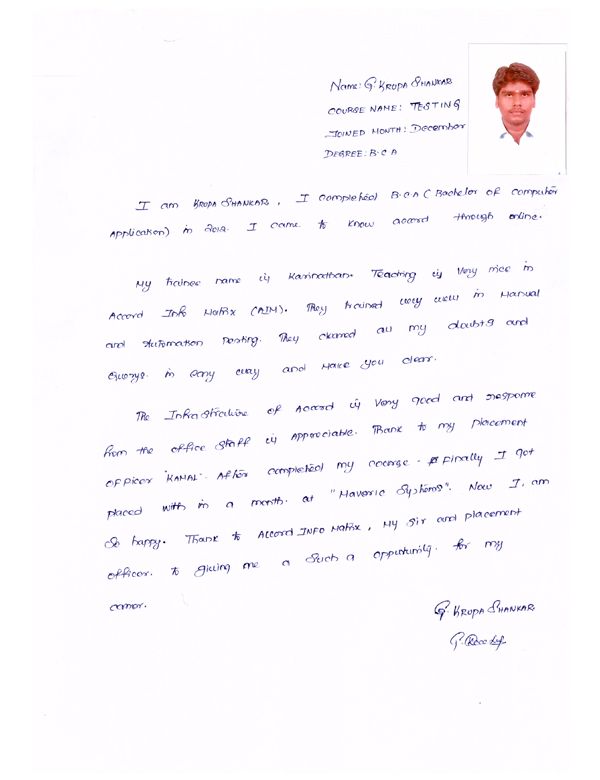 Name: G. KRUPA SHANKAR
COURSE NAME: TESTING
JOINED MONTH: December
DEGREE: B.C.A
I am KRUPA SHANKAR, I completed B.C.A (Bachelor of computer
Application) in 2012. I came to know accord through online.
My trainee name is Karinathan. Teaching is very nice in
Accord Info Matrix (AIM). They trained very well in Manual
and Automation Testing. They cleared all my doubts and
in easy way and make you clear.
The Infrastructure of Accord is very good and response
from the office staff is Appreciable. Thank to my placement
officer "KAMAL". After completed my course. Finally I got
placed with in a month. at "Maveric Systems". Now I, am
so happy. Thank to Accord INFO Matrix, My sir and placement
officer. to giving me a such a opportunity. for my
carrier.
G. KRUPA SHANKAR